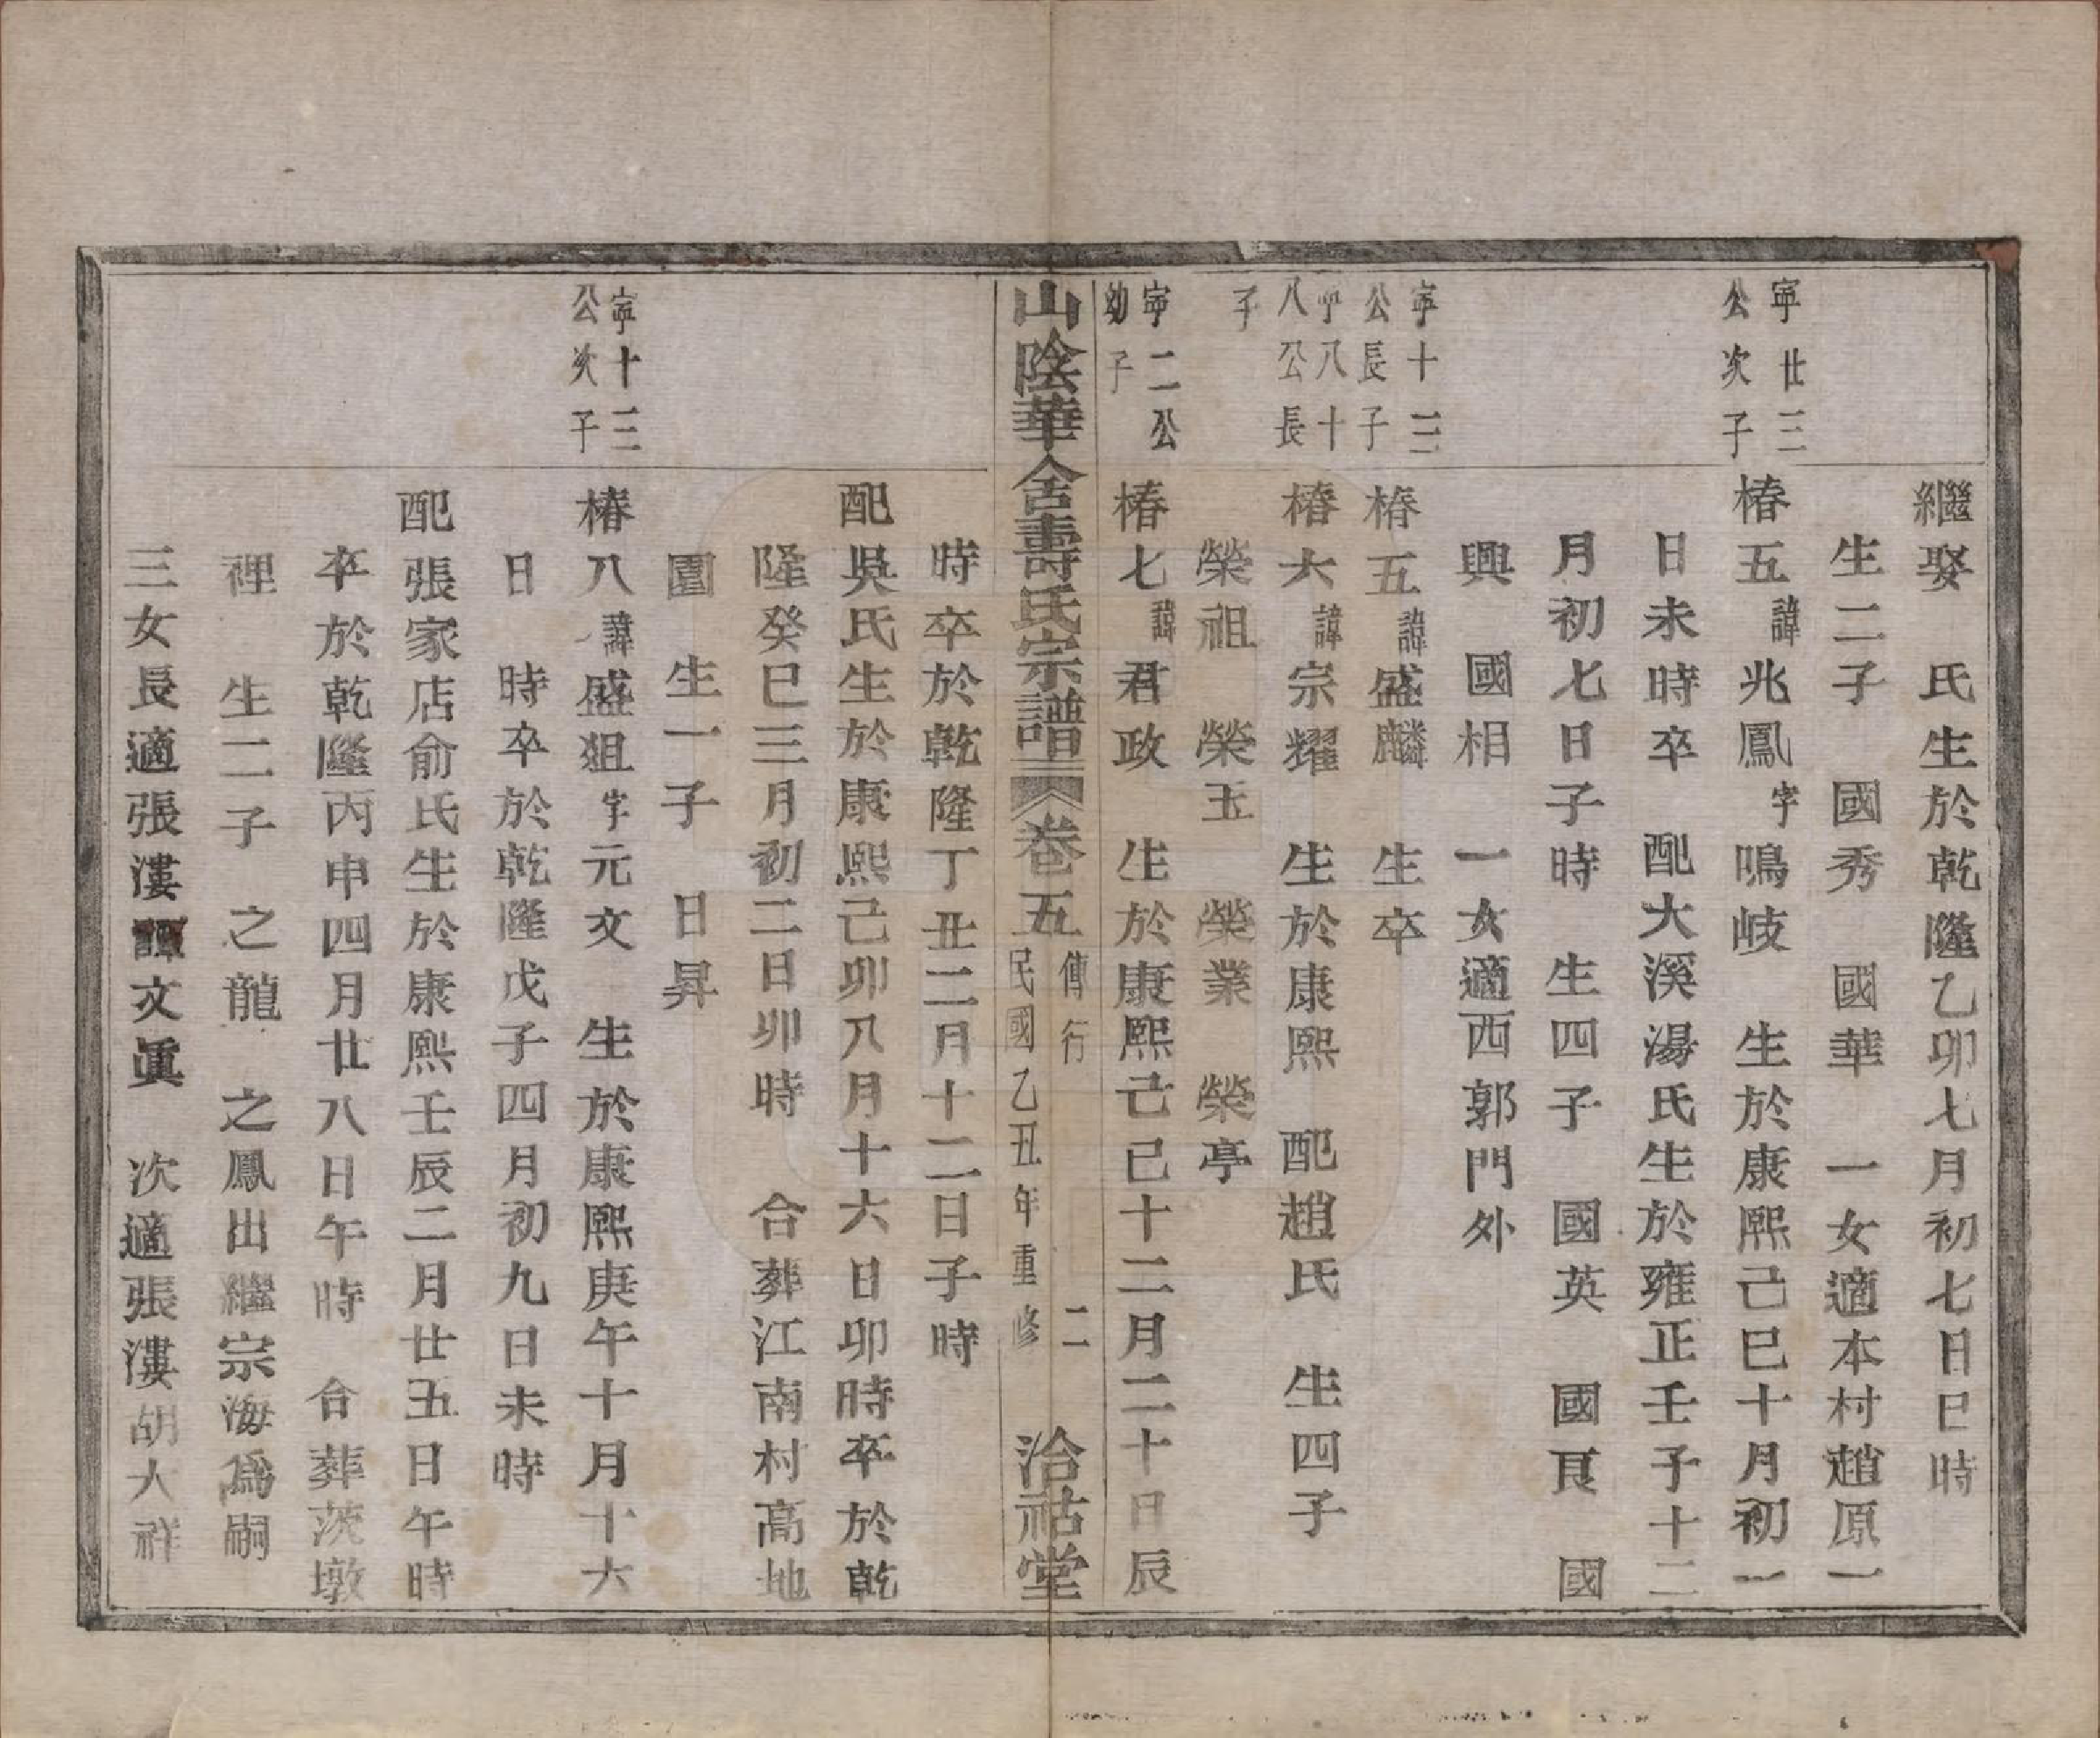 繼娶　氏生於乾隆乙卯七月初七日巳時
生二子　國秀　國華　一女適本村趙原一
寧廿三
公次子
椿五諱兆鳳字鳴岐　生於康熙己巳十月初一
日未時卒　配大溪湯氏生於雍正壬子十二
月初七日子時　生四子　國英　國良　國
興　國相　一女適西郭門外
寧十三
公長子
椿五諱盛麟　生卒
寧八十
八公長
子
椿六諱宗耀　生於康熙　配趙氏　生四子
榮祖　榮玉　榮業　榮亭
寧二一公
幼子
椿七諱君政　生於康熙己巳十二月二十日辰
山陰華舍壽氏宗譜　卷五　傳行　二　民國乙丑年重修　洽祜堂
時卒於乾隆丁丑二月十二日子時
配吳氏生於康熙己卯八月十六日卯時卒於乾
隆癸巳三月初二日卯時　合葬江南村高地
園　生一子　日昇
寧十三
公次子
椿八諱盛狙字元文　生於康熙庚午十月十六
日　時卒於乾隆戊子四月初九日未時
配張家店俞氏生於康熙壬辰二月廿五日午時
卒於乾隆丙申四月廿八日午時　合葬茨墩
裡　生二子　之龍　之鳳出繼宗海爲嗣
三女長適張漊譚文眞　次適張漊胡大祥